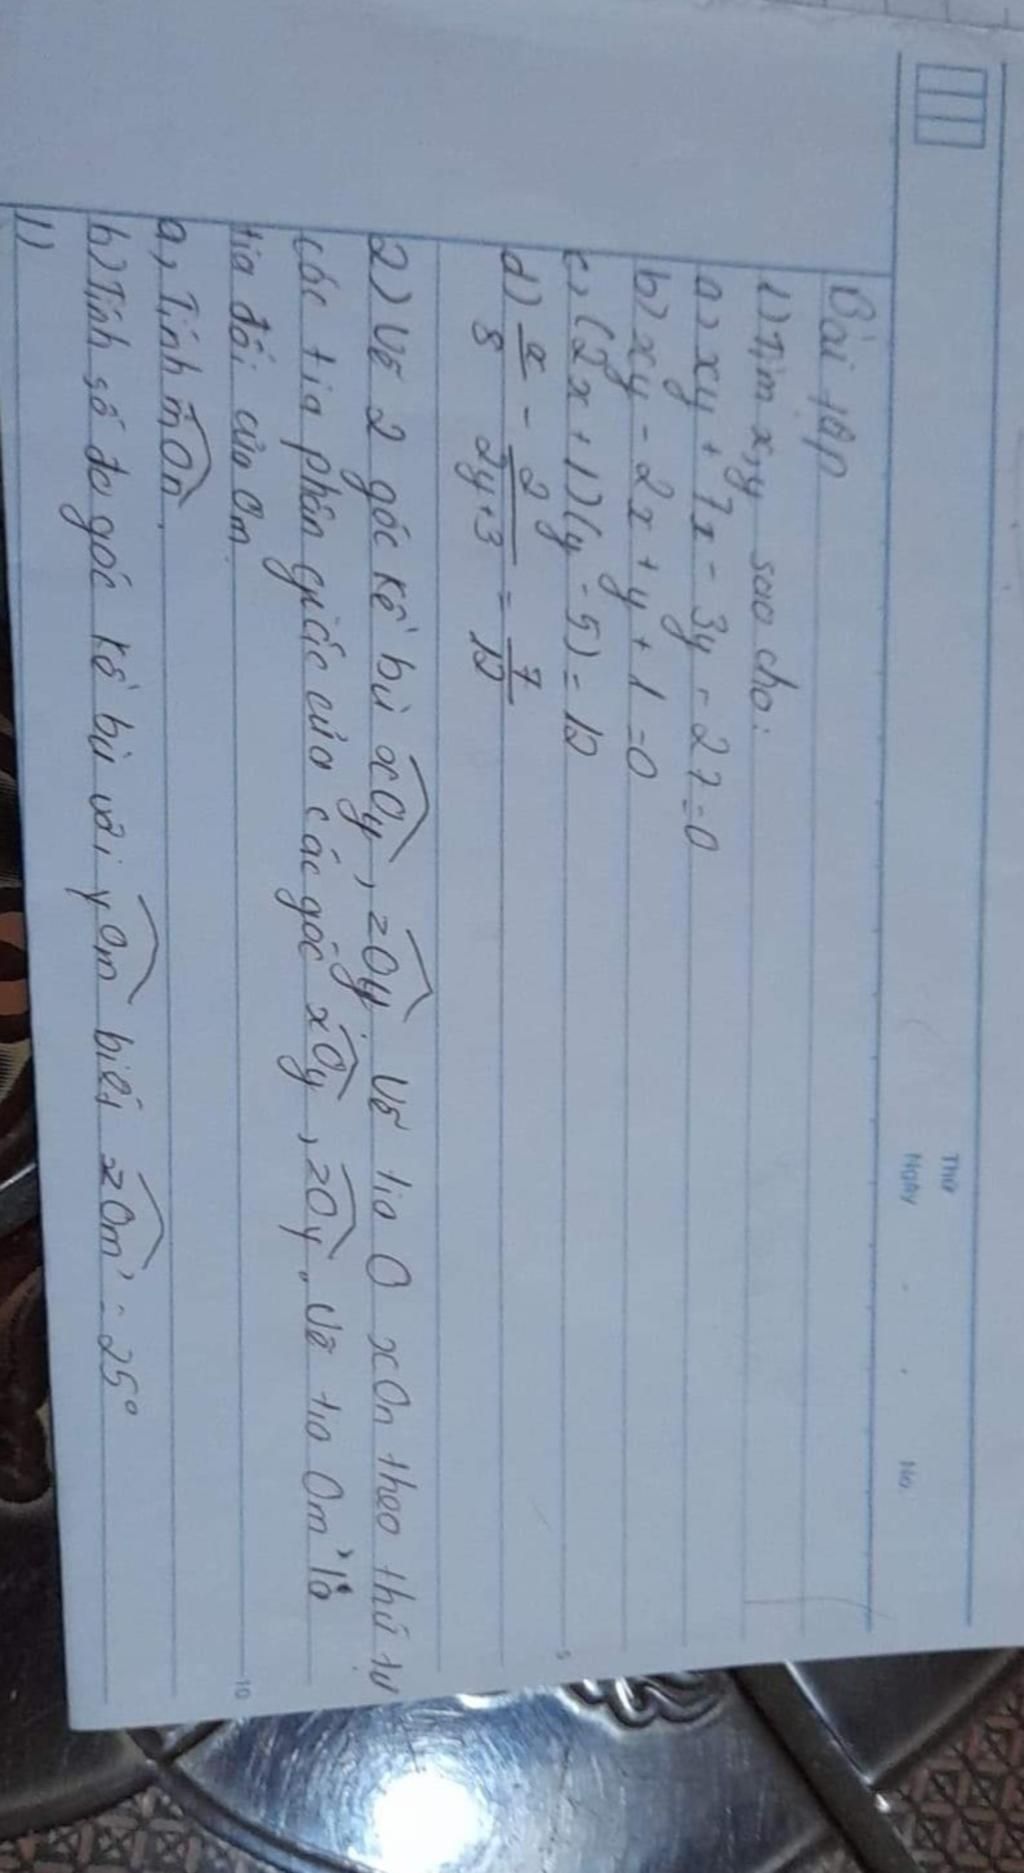 Thứ
Ngày . . No.
Bài tập
1) Tìm x,y sao cho:
a) xy + 7x - 3y - 27 = 0
b) xy - 2x + y + 1 = 0
c) (2x + 1)(y - 5) = 12
d) x/8 - 2/2y+3 = 7/12
5
2) Vẽ 2 góc kề bù xOy, zOy. Vẽ tia O xOn theo thứ tự
các tia phân giác của các góc xOy, zOy. Vẽ tia Om' là
tia đối của Om.
10
a, Tính mOn.
b) Tính số đo góc kề bù với yOm biết zOm' = 25°
1)